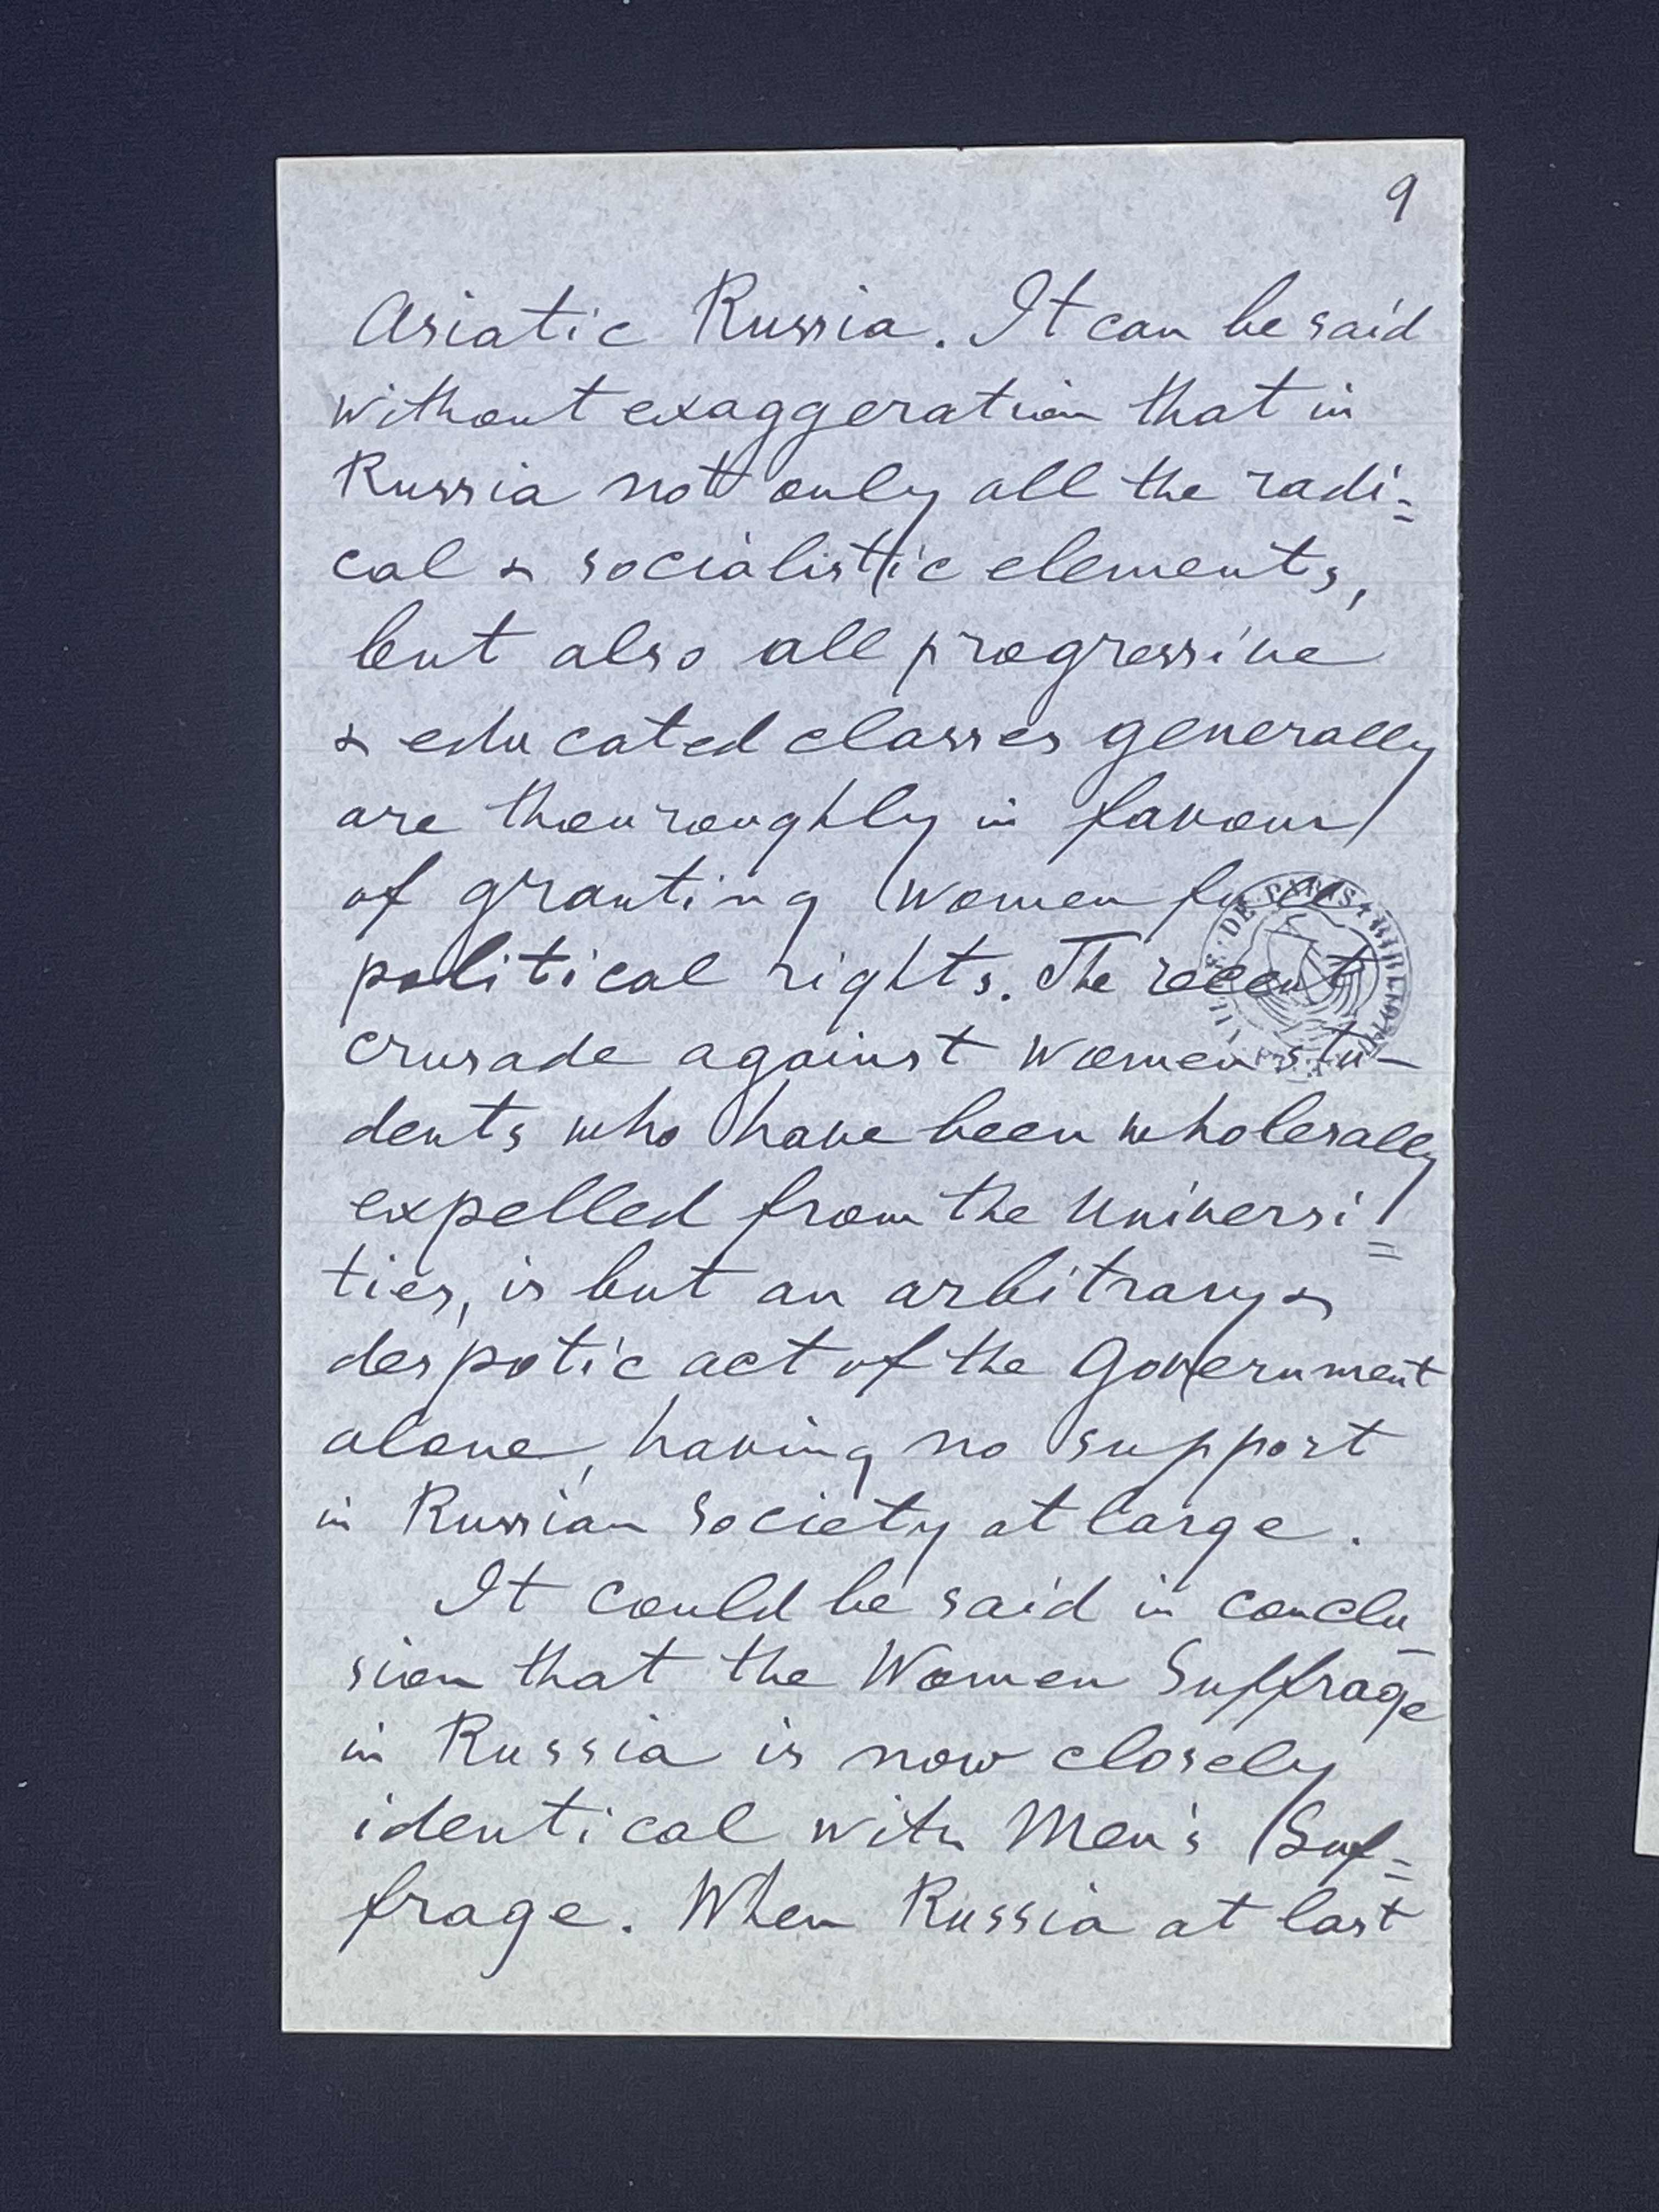 9
Asiatic Russia. It can be said
without exaggeration that in
Russia not only all the radi=
cal & socialistic elements,
but also all progressive
& educated classes generally
are thouroughly in favour
of granting women full
political rights. The recent
crusade against women stu-
dents who have been wholesally
expelled from the Universi=
ties, is but an arbitrary &
despotic act of the Government
alone, having no support
in Russian Society at large.
It could be said in conclu-
sion that the Women Suffrage
in Russia is now closely
identical with Men's Suf=
frage. When Russia at last
DE PARIS * BIBLIOTH